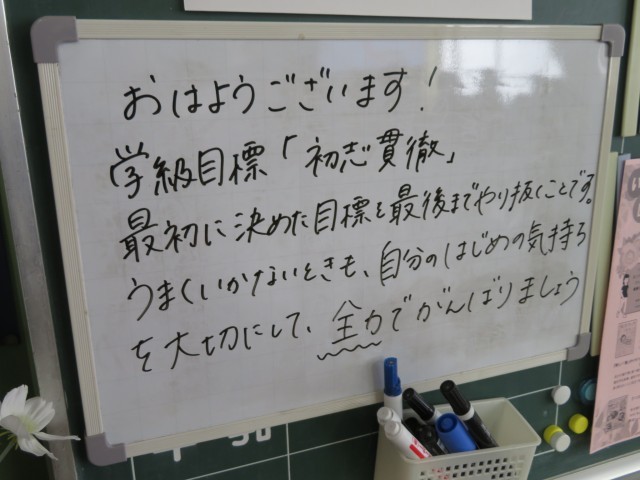 おはようございます!
学級目標「初志貫徹」
最初に決めた目標を最後までやり抜くことです。
うまくいかないときも、自分のはじめの気持ち
を大切にして、全力でがんばりましょう